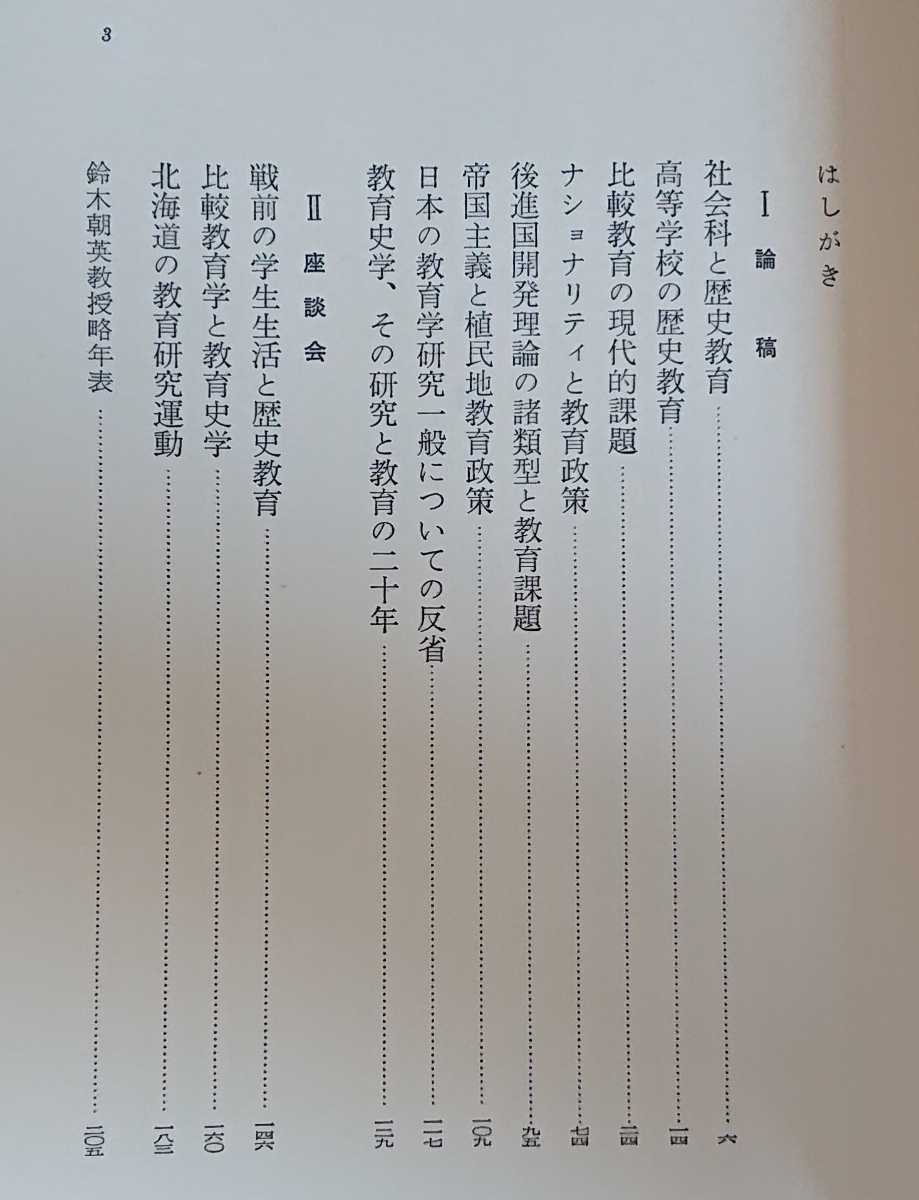 はしがき
Ⅰ 論稿
社会科と歴史教育……六
高等学校の歴史教育……一四
比較教育の現代的課題……二四
ナショナリティと教育政策……七四
後進国開発理論の諸類型と教育課題……九五
帝国主義と植民地教育政策……一〇九
日本の教育学研究一般についての反省……一一七
教育史学、その研究と教育の二十年……一三九
Ⅱ 座談会
戦前の学生生活と歴史教育……一四六
比較教育学と教育史学……一六〇
北海道の教育研究運動……一八三
鈴木朝英教授略年表……二〇五
3